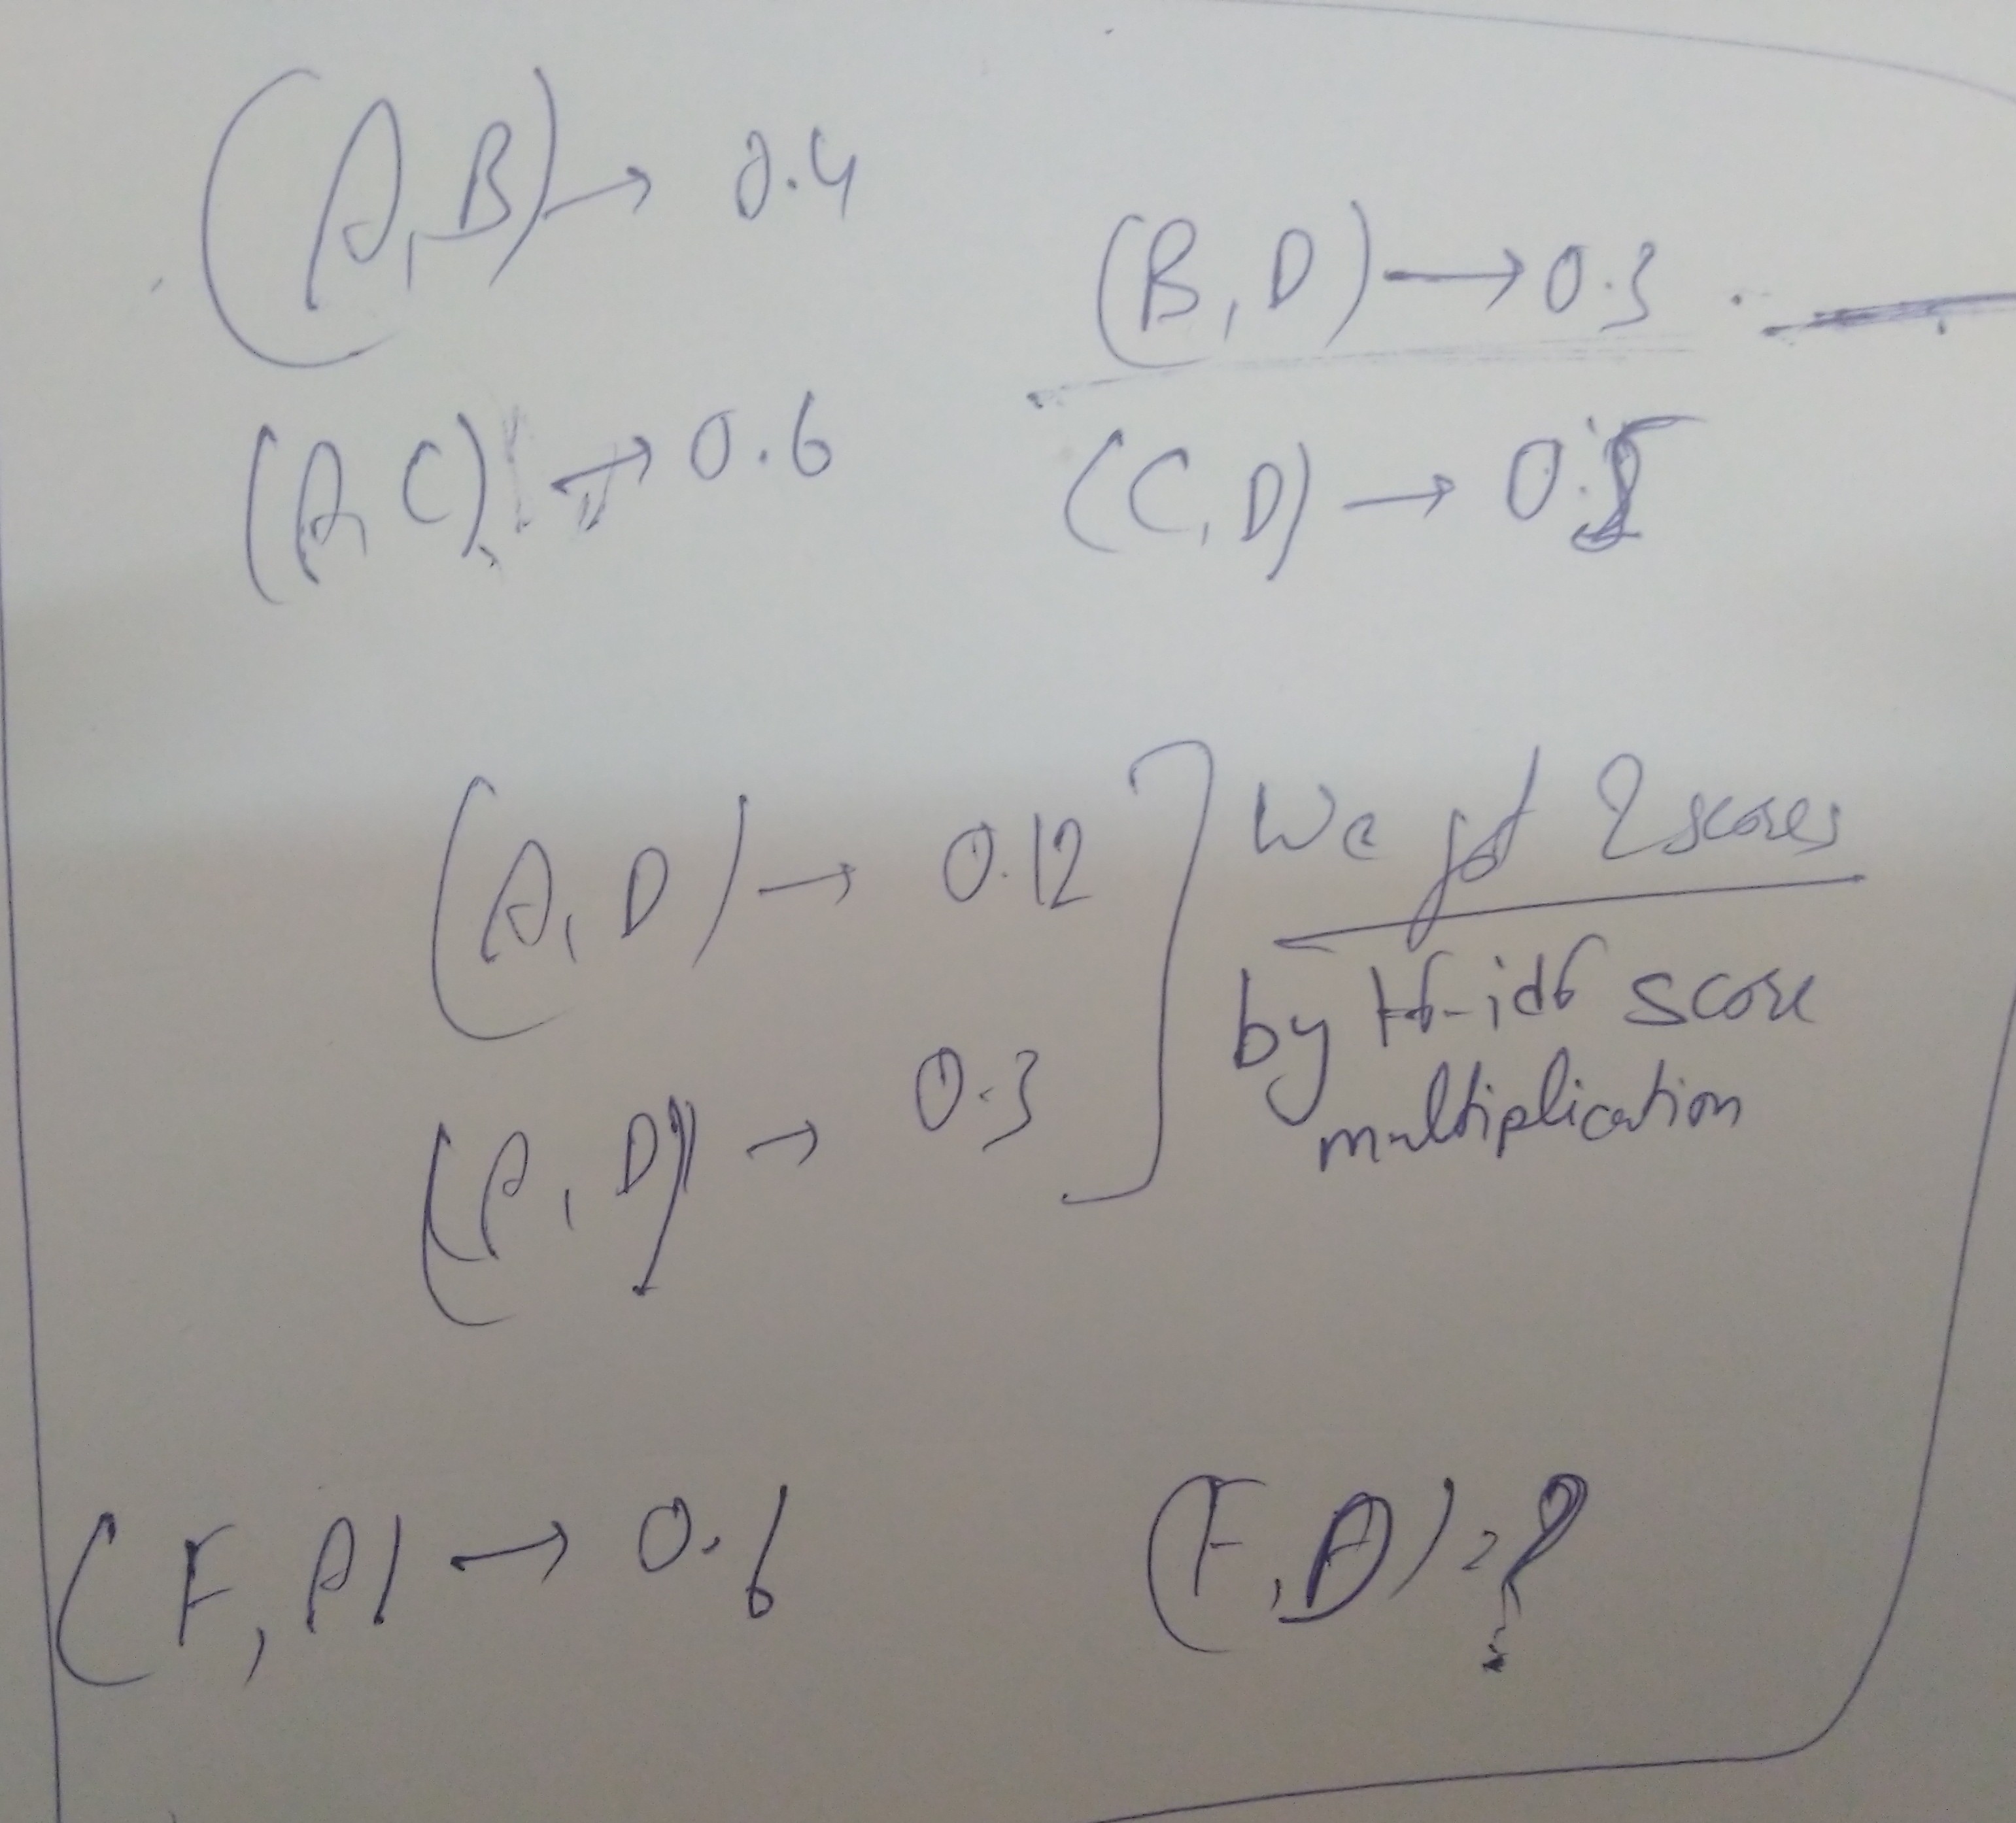 (A,B) → 0.4
(B,D) → 0.3
(A,C) → 0.6
(C,D) → 0.5
(A,D) → 0.12
We got 2 scores
by tf-idf score
multiplication
(A,D) → 0.3
(F,A) → 0.6
(F,D) = ?